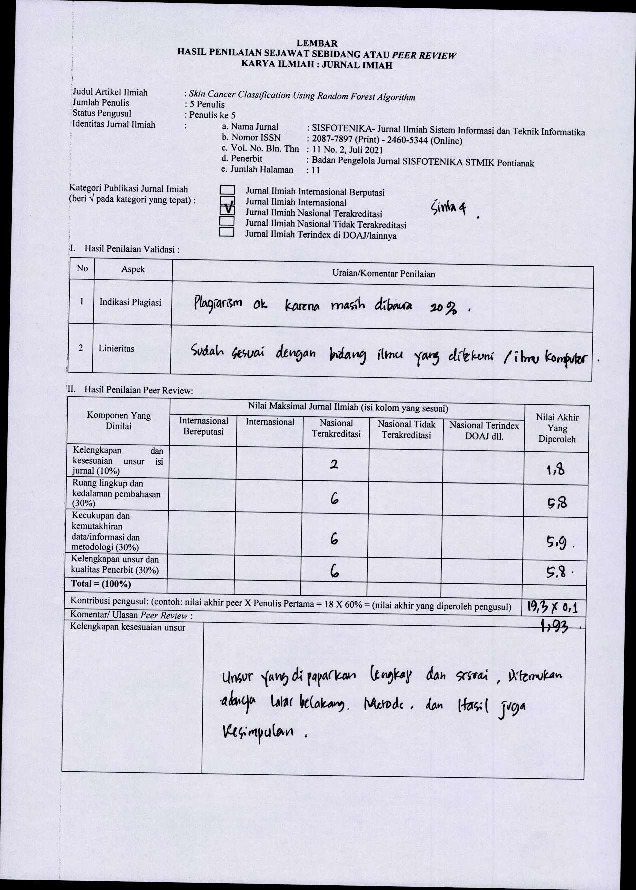 LEMBAR
HASIL PENILAIAN SEJAWAT SEBIDANG ATAU PEER REVIEW
KARYA ILMIAH : JURNAL IMIAH
Judul Artikel Ilmiah : Skin Cancer Classification Using Random Forest Algorithm
Jumlah Penulis : 5 Penulis
Status Pengusul : Penulis ke 5
Identitas Jurnal Ilmiah : a. Nama Jurnal : SISFOTENIKA- Jurnal Ilmiah Sistem Informasi dan Teknik Informatika
b. Nomor ISSN : 2087-7897 (Print) - 2460-5344 (Online)
c. Vol. No. Bln. Thn : 11 No. 2, Juli 2021
d. Penerbit : Badan Pengelola Jurnal SISFOTENIKA STMIK Pontianak
e. Jumlah Halaman : 11
Kategori Publikasi Jurnal Imiah
(beri √ pada kategori yang tepat) :
Jurnal Ilmiah Internasional Berputasi
Jurnal Ilmiah Internasional
√ Jurnal Ilmiah Nasional Terakreditasi
Jurnal Ilmiah Nasional Tidak Terakreditasi
Jurnal Ilmiah Terindex di DOAJ/lainnya
Sinta 4 .
I. Hasil Penilaian Validasi :
No Aspek Uraian/Komentar Penilaian
1 Indikasi Plagiasi Plagiarism ok karena masih dibawa 20% .
2 Linieritas Sudah sesuai dengan bidang ilmu yang ditekuni / ilmu komputer .
II. Hasil Penilaian Peer Review:
Komponen Yang Dinilai
Nilai Maksimal Jurnal Ilmiah (isi kolom yang sesuai)
Nilai Akhir Yang Diperoleh
Internasional Bereputasi
Internasional
Nasional Terakreditasi
Nasional Tidak Terakreditasi
Nasional Terindex DOAJ dll.
Kelengkapan dan
kesesuaian unsur isi
jurnal (10%) 2 1,8
Ruang lingkup dan
kedalaman pembahasan
(30%) 6 5,8
Kecukupan dan
kemutakhiran
data/informasi dan
metodologi (30%) 6 5,9 .
Kelengkapan unsur dan
kualitas Penerbit (30%) 6 5.8 .
Total = (100%)
Kontribusi pengusul: (contoh: nilai akhir peer X Penulis Pertama = 18 X 60% = (nilai akhir yang diperoleh pengusul) 19,3 x 0,1
Komentar/ Ulasan Peer Review : 1,93
Kelengkapan kesesuaian unsur
Unsur yang di paparkan lengkap dan sesuai , Ditemukan
adanya latar belakang. Metode , dan Hasil juga
Kesimpulan .